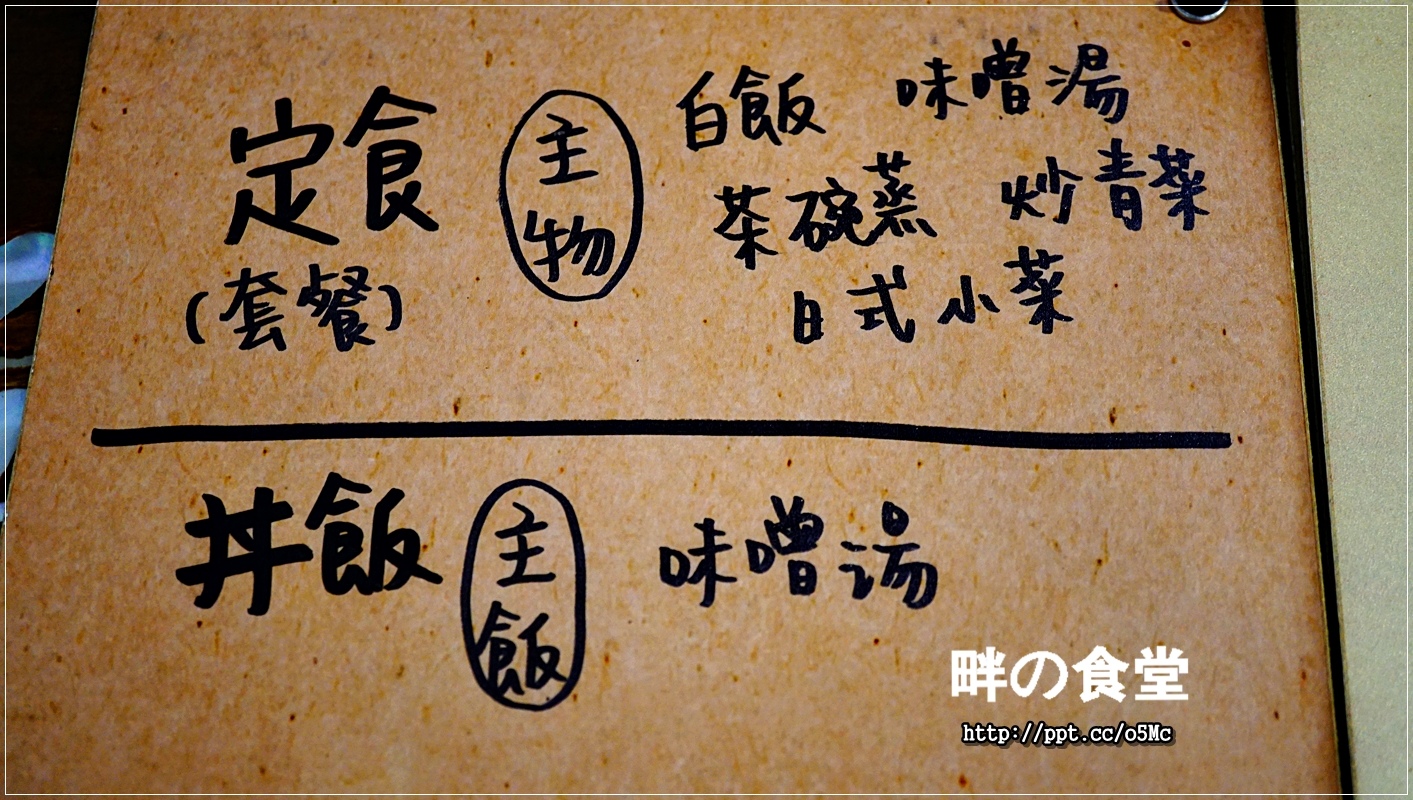 定食
(套餐)
主物
白飯 味噌湯
茶碗蒸 炒青菜
日式小菜
丼飯
主飯
味噌湯
畔の食堂
http://ppt.cc/o5Mc